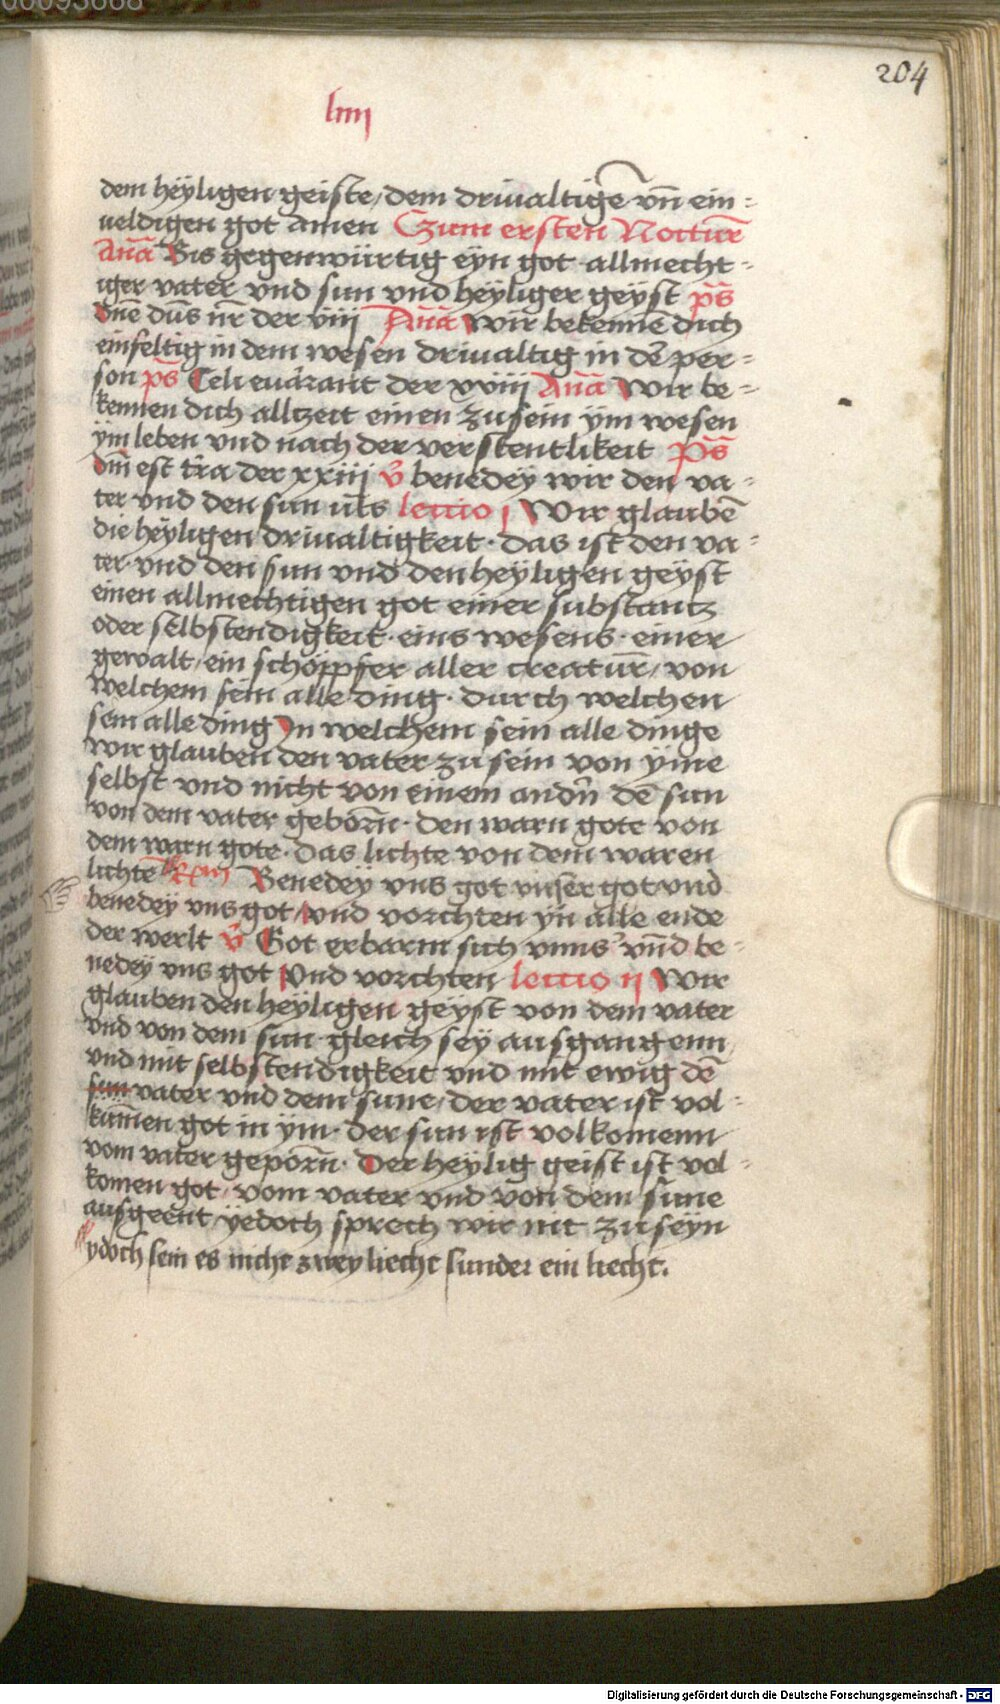 00093668
204
liiij
dem heÿligen geiste / dem driualtigē vn̄ ein-
ueldigen got amen Czum ersten Nocturē
Ana̅ Bis gegenwürtig eyn got allmecht-
iger vater vnd sun vnd heÿliger geÿst ps̄
Dn̄e dn̄s nr̄ der viij Ana̅ Wir bekennē dich
einfeltig in dem wesen driualtig in der per-
son ps̄ Celi enārant der xviij Ana̅ Wir be-
kennen dich allzeit einen zu sein ÿm wesen
ÿm leben vnd nach der verstentlikeit Ps̄
Dn̄i est tr̄a der xxiij v̄ benedey wir den va-
ter vnd den sun vt̄s lectio j Wir glaubē
die heÿligen driualtigkeit · das ist den va-
ter · vnd den sun vnd den heÿligen geÿst
einen allmechtigen got einer substantz
oder selbstendigkeit · eins wesens · einer
gewalt / ein schöppfer aller creatur̄ / von
welchem sein alle ding · durch welchen
sein alle ding Jn welchem sein alle dinge
wir glauben den vater zu sein von ÿme
selbst vnd nicht von einem andn̄ dē sun
von dem vater geborn̄ · den warn gote von
dem warn gote · das lichte von dem waren
lichte Benedeÿ vns got vnser got vnd
benedey vns got / vnd vorchten ÿn alle ende
der werlt v̄ Got erbarm sich vnns vnd be-
nedeÿ vns got Vnd vorchten lectio ij Wir
glauben den heÿligen geÿst von dem vater
vnd von dem sun · gleich seÿ ausgangenn
vnd mit selbstendigkeit vnd mit ewig dē
sun vater vnd dem sune / der vater ist vol-
kūmen got in ÿm · der sun ist volkomenn
vom vater geporn̄ · Der heÿlig geist ist vol-
komen got / vom vater vnd von dem sune
ausgeent ÿedoch sprech wir nit zu seÿn
ydoch sein es nicht zwey liecht sunder ein liecht.
Digitalisierung gefördert durch die Deutsche Forschungsgemeinschaft - DFG